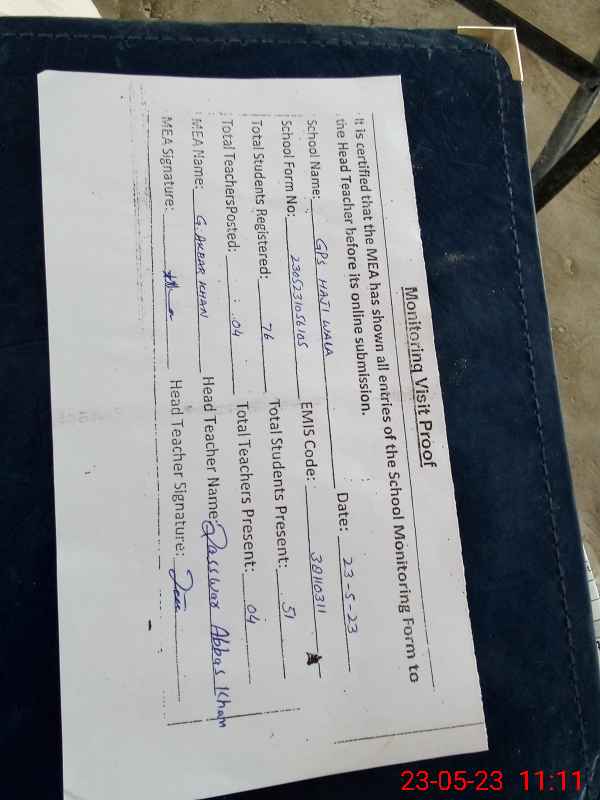 Monitoring Visit Proof
It is certified that the MEA has shown all entries of the School Monitoring Form to
the Head Teacher before its online submission.
Date: 23-5-23
School Name: GPS HAJI WALA
School Form No: 2305231056105 EMIS Code: 30110311
Total Students Registered: 76 Total Students Present: 51
Total TeachersPosted: 04 Total Teachers Present: 04
MEA Name: G. AKBAR KHAN Head Teacher Name: Qasswar Abbas Kham
MEA Signature: Head Teacher Signature:
23-05-23 11:11